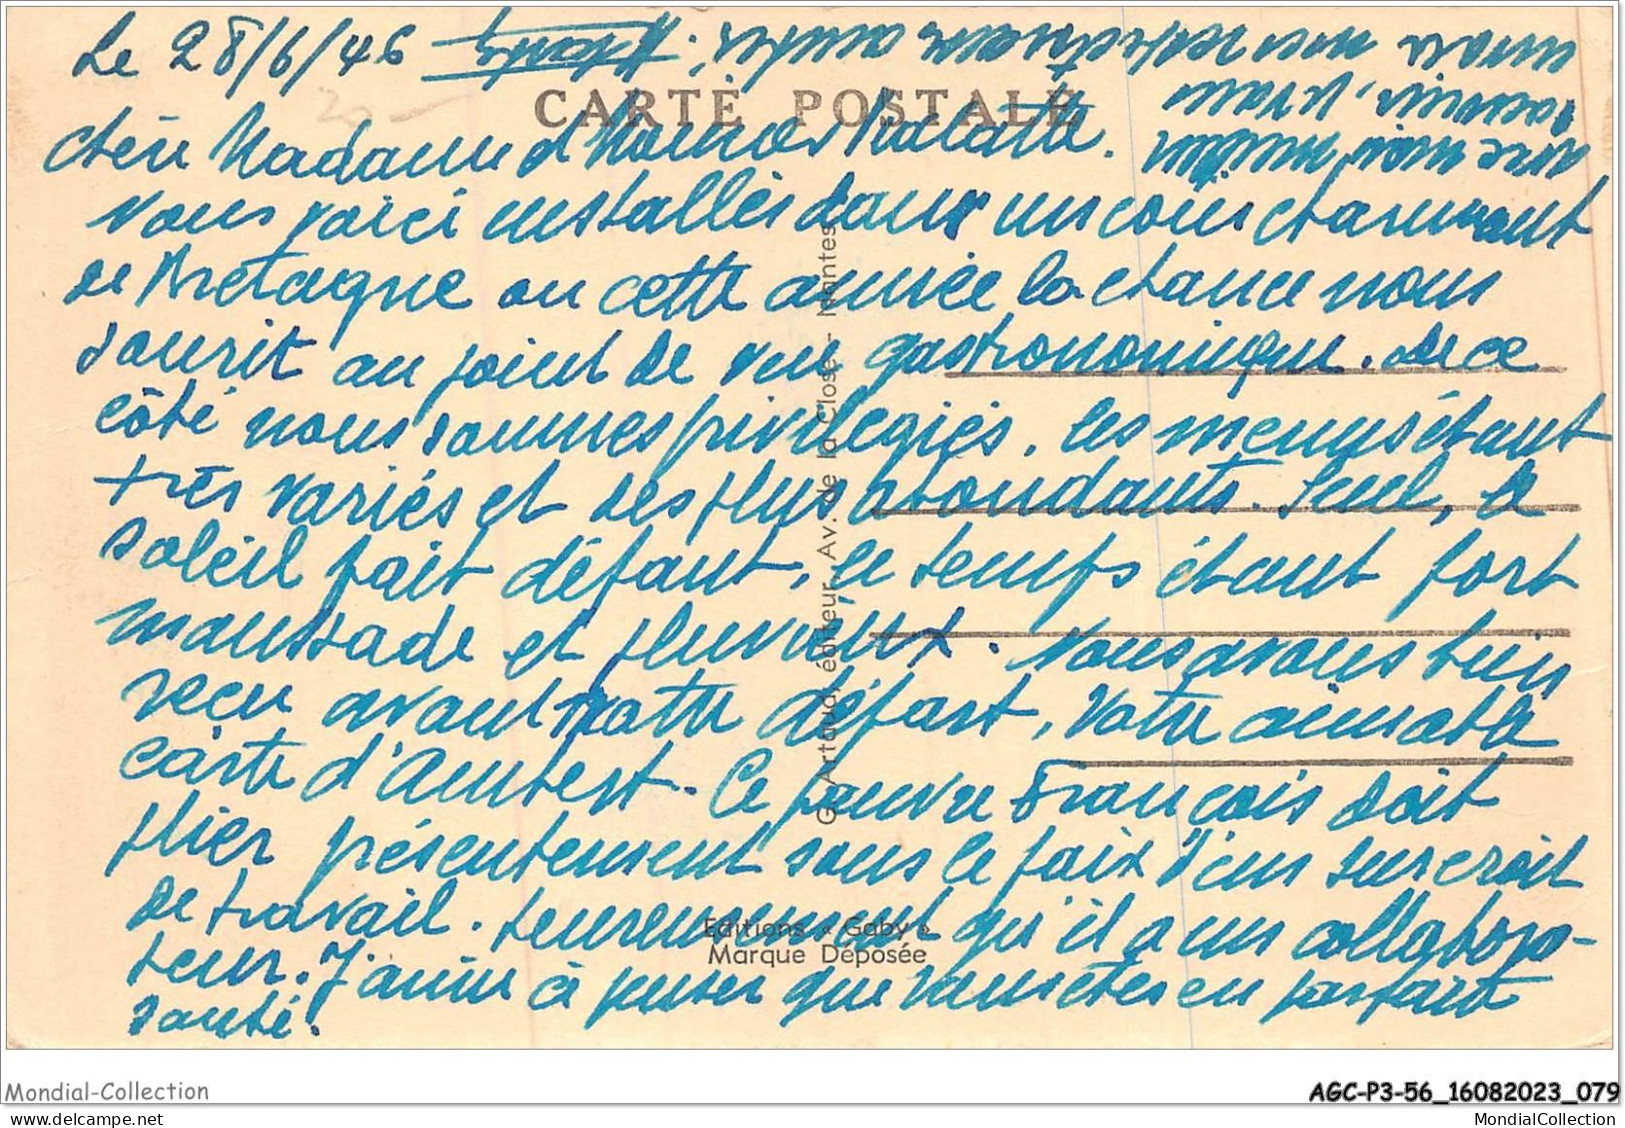 Le 28/6/46
CARTE POSTALE
Chère Madame
Nous voici installés dans un coin charmant
de Bretagne ou cette année la chance nous
sourit au point de vue gastronomique. De ce
côté nous sommes privilégiés, les menus étant
très variés et des plus abondants. Seul, le
soleil fait défaut, le temps étant fort
maussade et pluvieux. Nous avons bien
reçu avant notre départ, votre aimable
carte d'Ambert. Ce pauvre François doit
plier présentement sous le faix d'un surcroit
de travail. Heureusement qu'il a un collabora-
teur. J'aime à penser que vous êtes en parfaite
santé.
avec mon meilleur
souvenir, veuillez
nos respectueuses amitiés.
G. Artaud, éditeur, Av. de la Close - Nantes
Editions « Gaby »
Marque Déposée
Mondial-Collection
AGC-P3-56_16082023_079
MondialCollection